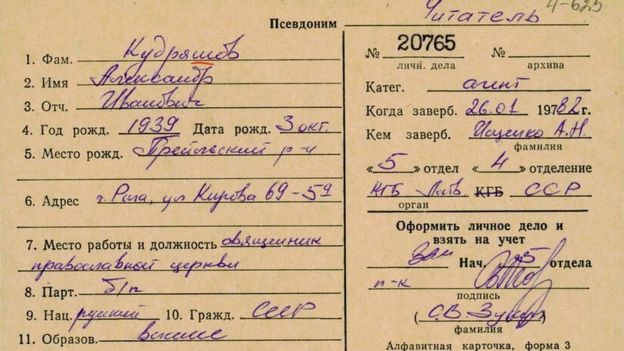 4-625
Псевдоним Читатель
1. Фам. Кудряшов
2. Имя Александр
3. Отч. Иванович
4. Год рожд. 1939 Дата рожд. 3 окт.
5. Место рожд. Прейльский р-н
6. Адрес г. Рига, ул Кирова 69-59
7. Место работы и должность священник
православной церкви
8. Парт. б/п
9. Нац. русский 10. Гражд. СССР
11. Образов. высшее
№ 20765 №
личн. дела архива
Катег. агент
Когда заверб. 26.01 1982 г.
Кем заверб. Ищенко А.Н.
фамилия
«5» отдел «4» отделение
КГБ Латв КГБ ССР
орган
Оформить личное дело и
взять на учет
зам Нач. 5 отдела
п-к
подпись
(С.В )
фамилия
Алфавитная карточка, форма 3